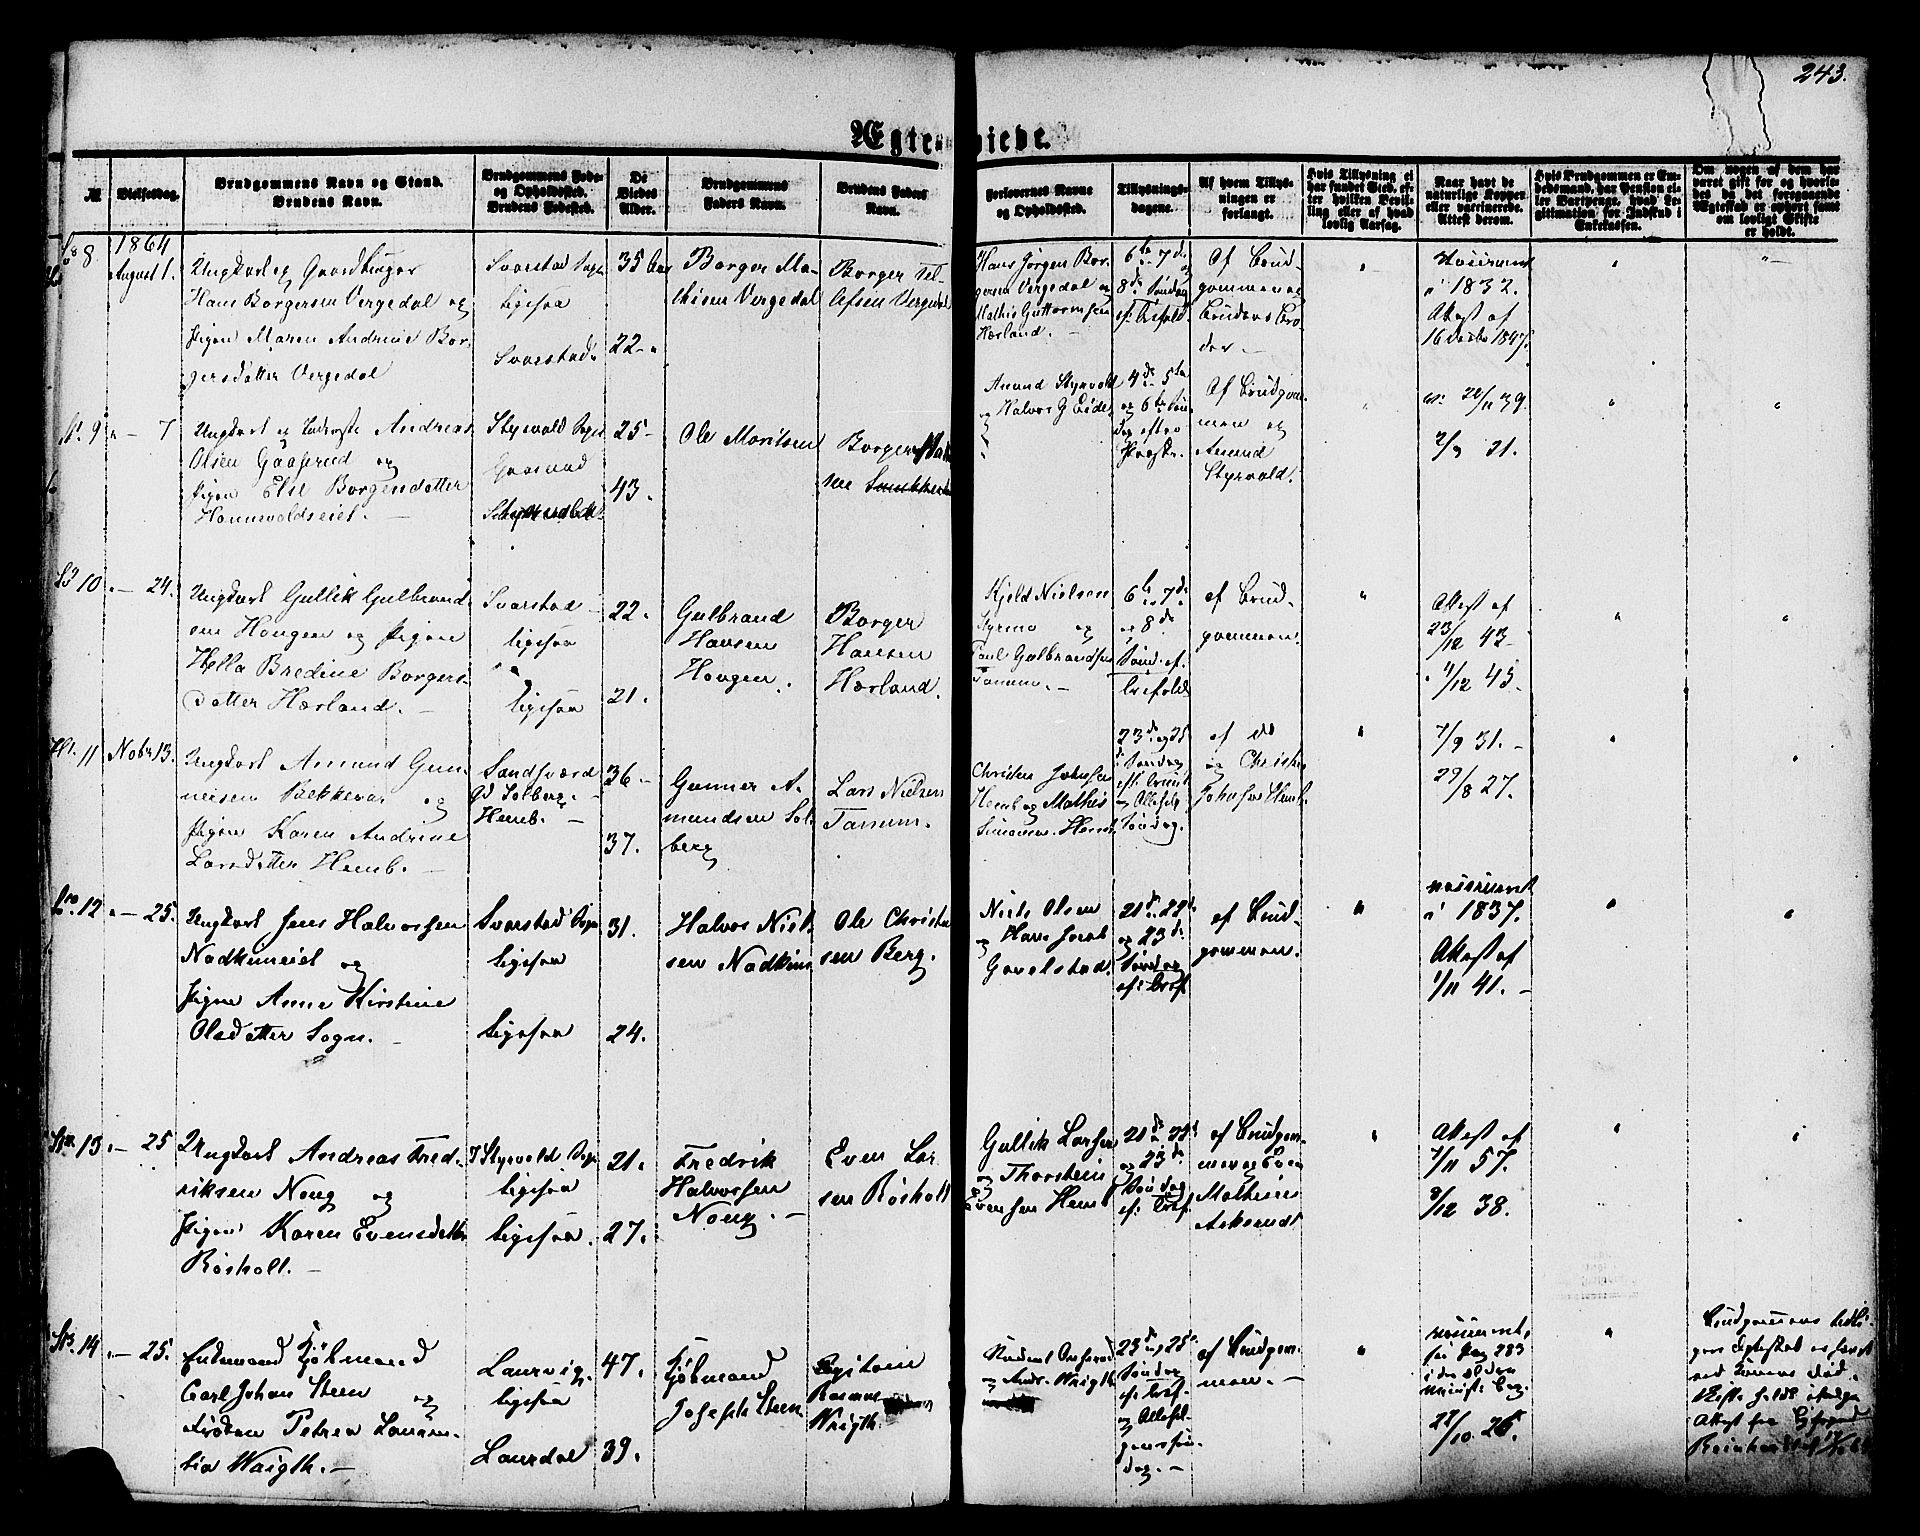 243.
Ægte viede.
№
Vielsesdag.
Brudgommens Navn og Stand.
Brudens Navn.
Brudgommens Føde-
og Opholdssted.
Brudens Fødested.
De
Viedes
Alder.
Brudgommens
Faders Navn.
Brudens Faders
Navn.
Forlovernes Navne
og Opholdssted.
Tillysnings-
dagene.
Af hvem Tillys-
ningen er
forlangt.
Hvis Tillysning ei
har fundet Sted, ef-
ter hvilken Bevil-
ling eller af hvad
lovlig Aarsag.
Naar havt de
naturlige Kopper
eller vaccinerede.
Attest derom.
Hvis Brudgommen er Em-
bedsmand, har Pension el-
ler Vartpenge, hvad Le-
gitimation for Indskud i
Enkekassen.
Om nogen af dem har
været gift før og hvorle-
des og det foregaaende
Ægteskab er ophørt samt
om lovligt Skifte
er holdt.
8
1864
August 1.
Ungkarl og Gaardbruger
Hans Borgersen Vergedal og
Pigen Maren Andrine Bor-
gersdatter Vergedal
Svarstad Sogn
ligesaa
Svarstad
35 Aar
22
Borger Ma-
thisen Vergedal
Borger Tel-
lefsen Vergedal
Hans Jørgen Bor-
gersen Vergedal og
Mathis Guttormsen
Hærland.
6te 7de og
8de Søndag
ef: Trefold.
Af Brud-
gommen og
Brudens Bro-
der.
Vaccineret
i 1832.
Attest af
16 Decbr 1847.
9
7
Ungkarl og Inderste Andreas
Olsen Gaaserud og
Pigen Else Borgersdatter
Hannevoldseiet.
Styrvold Sogn
Gaaserud
25
43.
Ole Moritsen
Borger
Amund Styrvold
og Halvor G Eide
4de 5te
og 6te Søn-
dag efter
Paaske.
Af Brudgom-
men og
Amund
Styrvold.
39.
21.
10
24.
Ungkarl Gullik Gulbrand-
sen Hougen og Pigen
Hella Bredine Borgers-
datter Hærland.
Svarstad
ligesaa
ligesaa
22.
21.
Gulbrand
Hansen
Hougen.
Borger
Hansen
Hærland.
Kjeld Nielsen
Styrmo og
Paul Gulbrandsen
Tamm.
6te 7de
og 8de
Sønd. ef.
trefold.
af Brud-
gommen.
Attest af
23/12 43
11/12 45.
11
Nobr 13.
Ungkarl Amund Gun-
nersen Bækkevar og
Pigen Karen Andrine
Larsdatter Hemb.
Sandsværd
Gd Solberg.
Hemb.
36
37.
Gunner A-
mundsen Sol-
berg
Lars Nielsen
Tamm.
Christen Johnsen
Hemb og Mathis
Simonsen Hemb
23de og 25
Søndag
eft: Trinit
og Allehelg
Søndag.
af do
og Christen
Johnsen Hemb.
7/9 31.
29/8 27.
12
25.
Ungkarl Jens Halvorsen
Nadkimeiet og
Pigen Anne Kirstine
Olsdatter Sogn.
Svarstad Sogn
ligesaa
ligesaa
31.
24.
Halvor Niel-
sen Nadkim
Ole Christen-
sen Berg.
Niels Olsen
og Hans Jacob
Gavelstad.
21de 22de
og 23de
Søndag
ef: Tref.
af Brud-
gommen.
vaccineret
i 1837.
Attest af
1/11 41.
13
25
Ungkarl Andreas Fred-
riksen Noug og
Pigen Karen Evensdatter
Røsholt.
Styrvold Sogn
ligesaa
ligesaa.
21.
27.
Fredrik
Halvorsen
Noug.
Even Lar-
sen Røsholt
Gullik Larsen
og Thorstein
Evensen Hemb
21de 22de
og 23de
Søndag
ef: Tref.
af Brudgom-
men og Even
Mathisen
Askerudt
Attest af
7/11 57.
8/12 38.
14
25.
Enkemand Kjøbmand
Carl Johan Steen og
Frøken Petrea Lauren-
tia Wrigth.
Laurvig.
ligesaa
Laurdal
47.
39.
Kjøbmand
Joseph Steen
Capitain
Rasmus
Wrigth.
og Andr. Wrigth
23de og 25
Søndag
ef: Tref.
og Allehel-
genssøn-
dag.
af Brudgom-
men.
vaccineret,
see Pag 283
i den ældre
minist: Bog.
22/10 26.
Brudgommens tidli-
gere Egteskab ophævet
ved Konens Død.